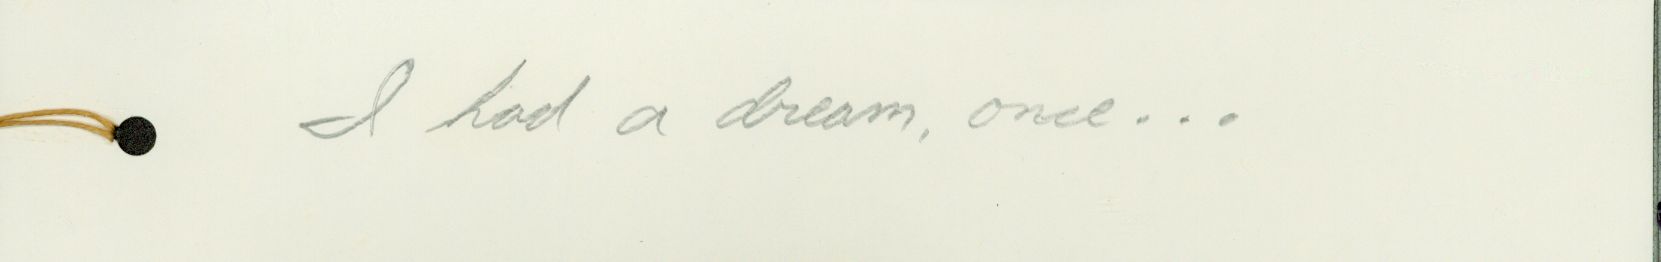 I had a dream, once...